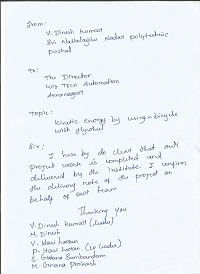 From:
V. Dinesh kumar
Sri Nallalaghu Nadar polytechnic
puzhal
To:
The Director
Wiz Tech Automation
Annanagar
Topic:
kinetic energy by using n bicycle
with flywheel
Sir:
I here by do clear that our
project work is completed and
delivered by the institute. I confirm
the delivery note of the project on
behalf of our team
Thanking you
V. Dinesh kumar (leader)
M. Dinesh
V. Hari haran
P. Hari haran (co leader)
S. Gnana Sambandam
M. Gnana Prakash